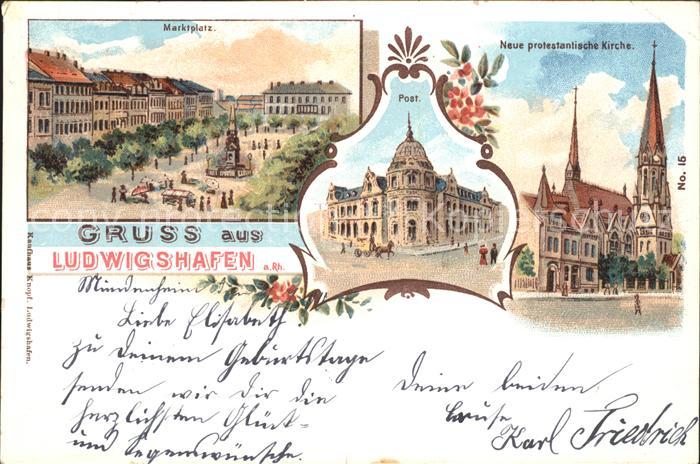 Marktplatz.
Post.
Neue protestantische Kirche.
No. 15
GRUSS aus
LUDWIGSHAFEN a. Rh.
Kaufhaus Knopf, Ludwigshafen.
Mundenheim
Liebe Elisabeth!
zu Deinem Geburtstage
senden wir Dir die
herzlichsten Glück-
und Segenswünsche.
Deine beiden
Karl Friedrich